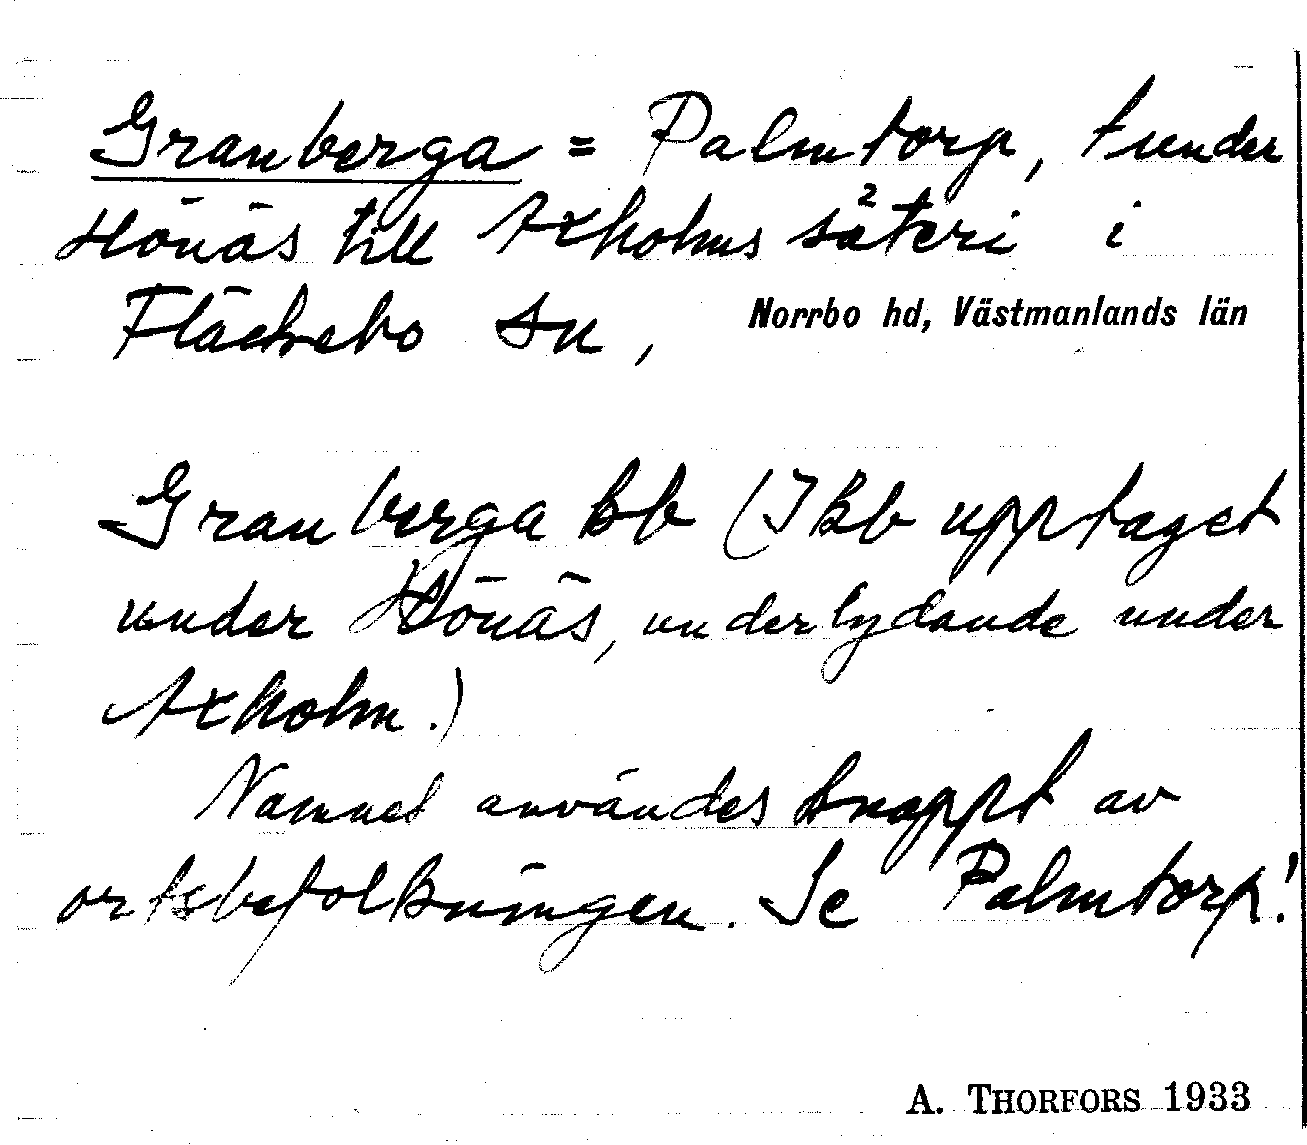 Granberga = Palmtorp, t under
Hönäs till Axholms säteri i
Fläckebo sn, Norrbo hd, Västmanlands län
Granberga kb (I kb upptaget
under Hönäs, underlydande under
Axholm.)
Namnet användes knappt av
ortsbefolkningen. Se Palmtorp!
A. THORFORS 1933